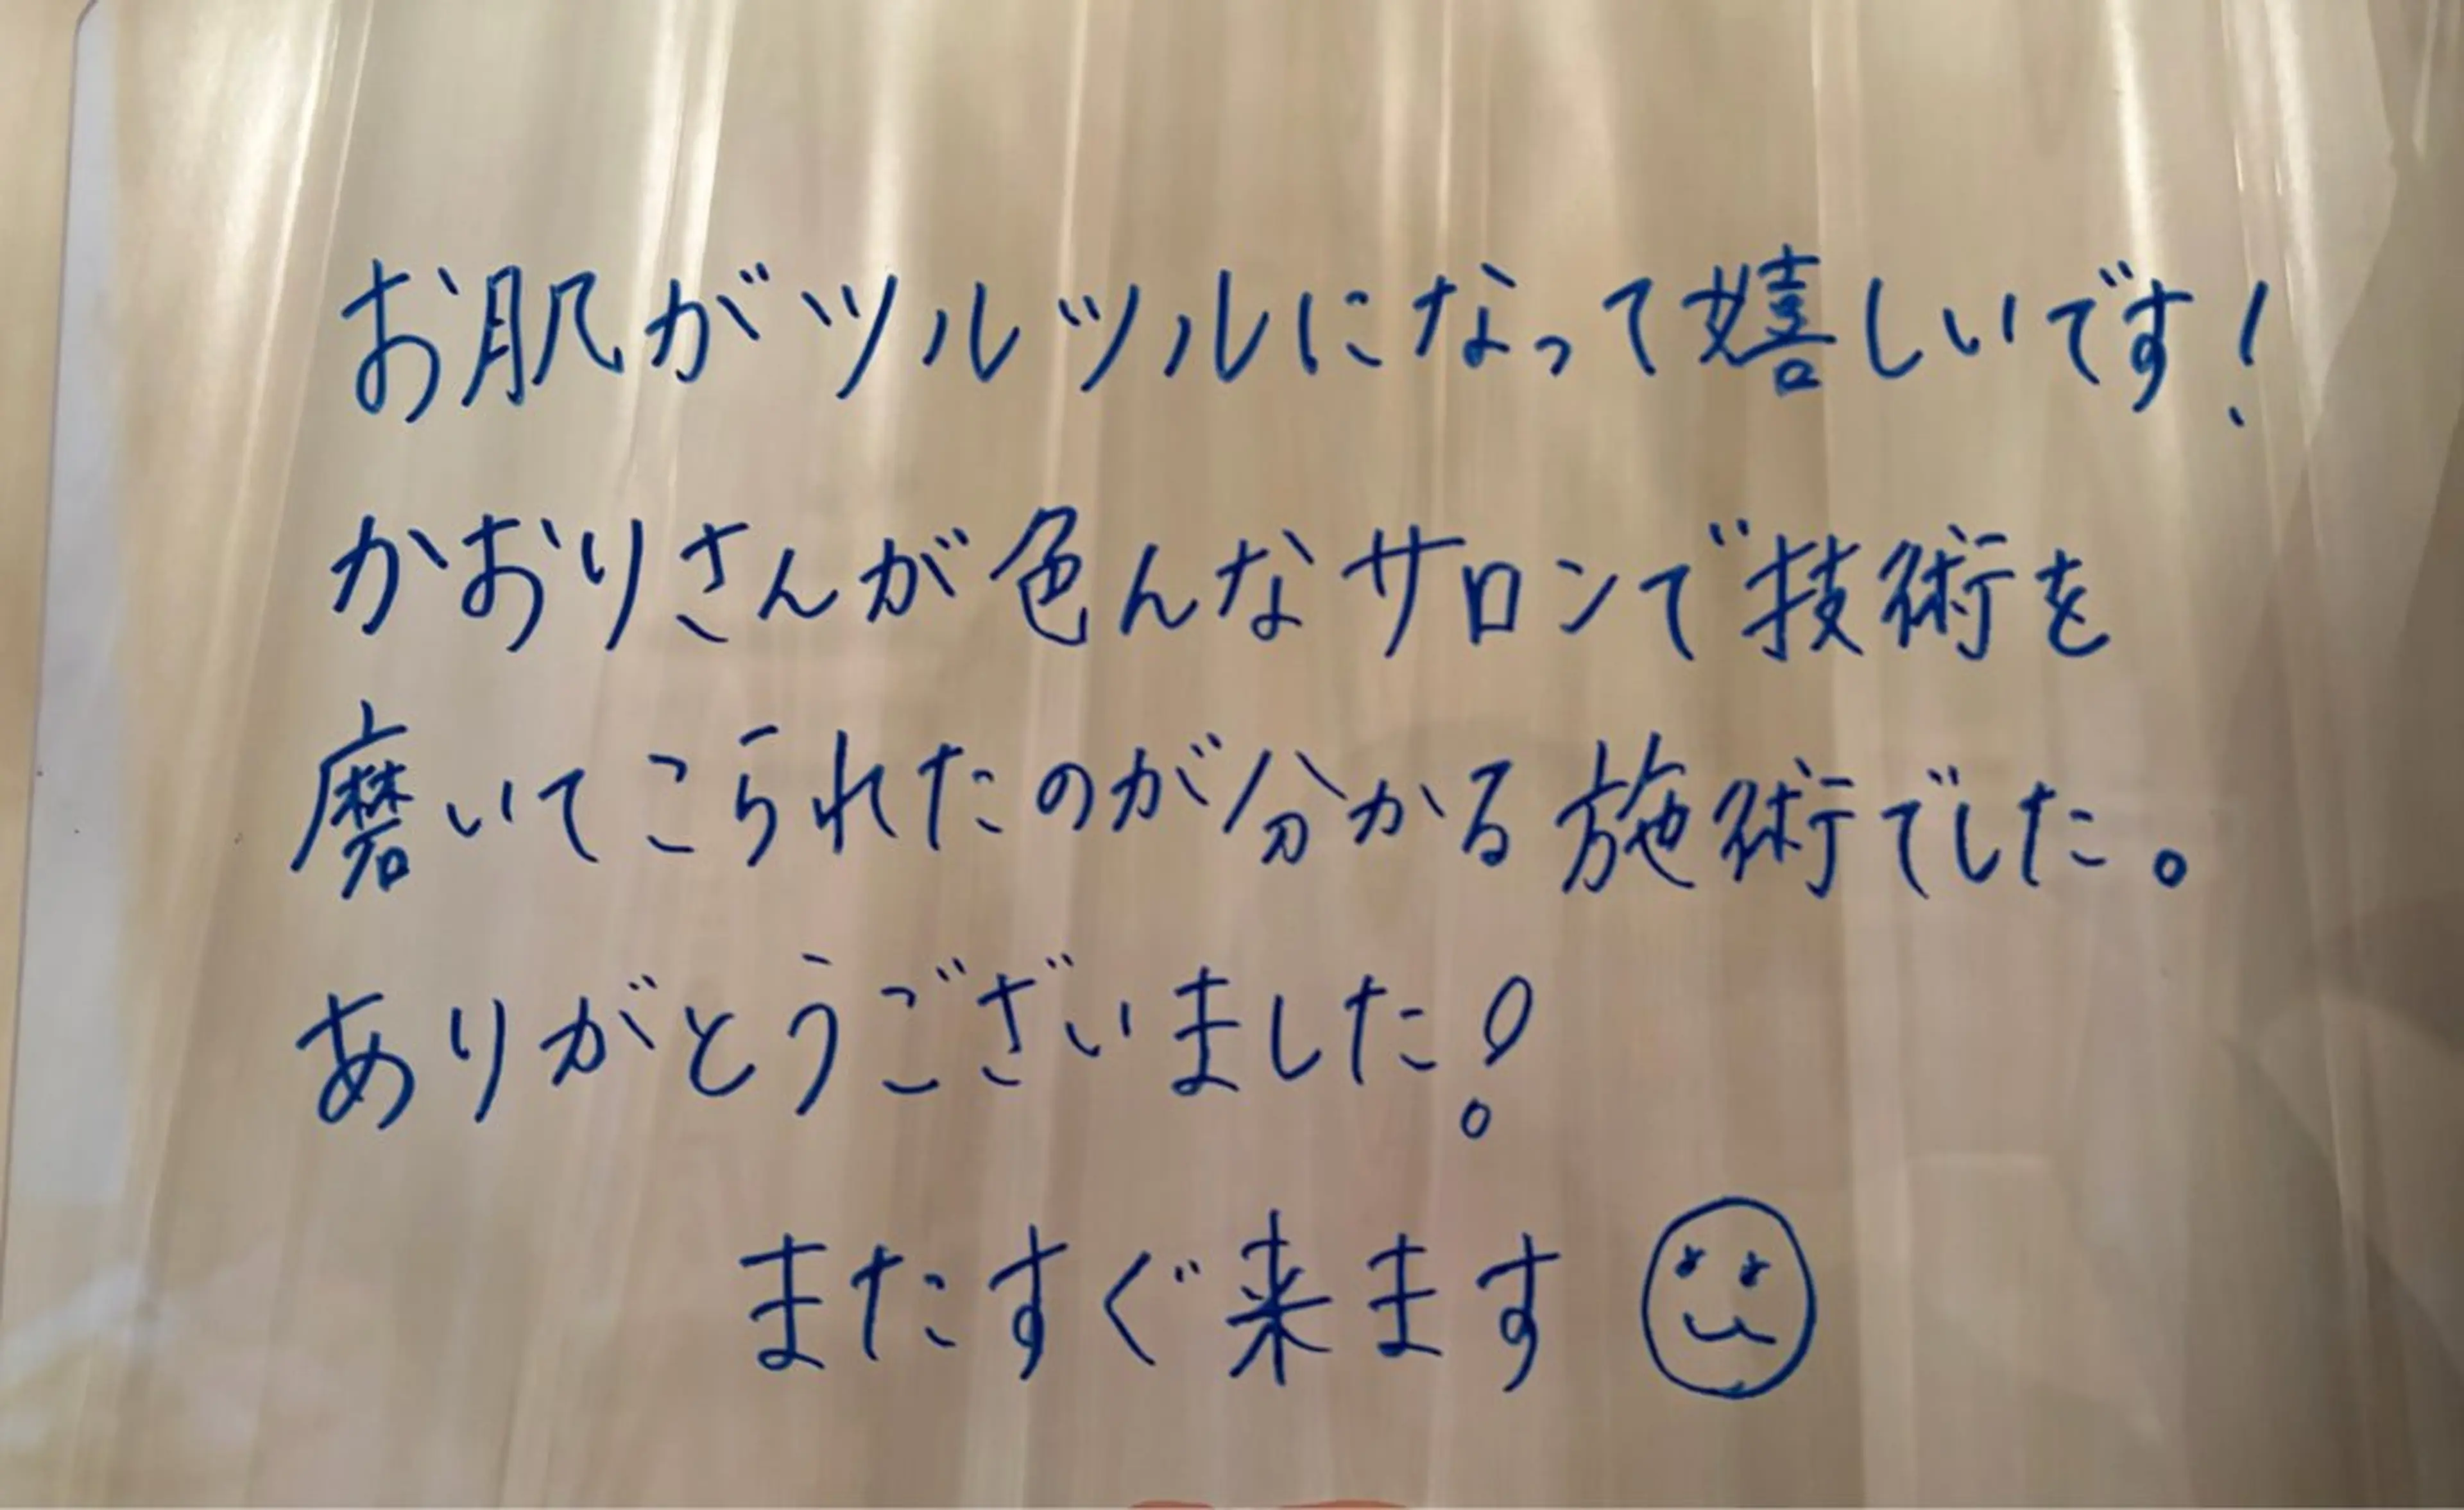 お肌がツルツルになって嬉しいです!
かおりさんが色んなサロンで技術を
磨いてこられたのが分かる施術でした。
ありがとうございました!
またすぐ来ます